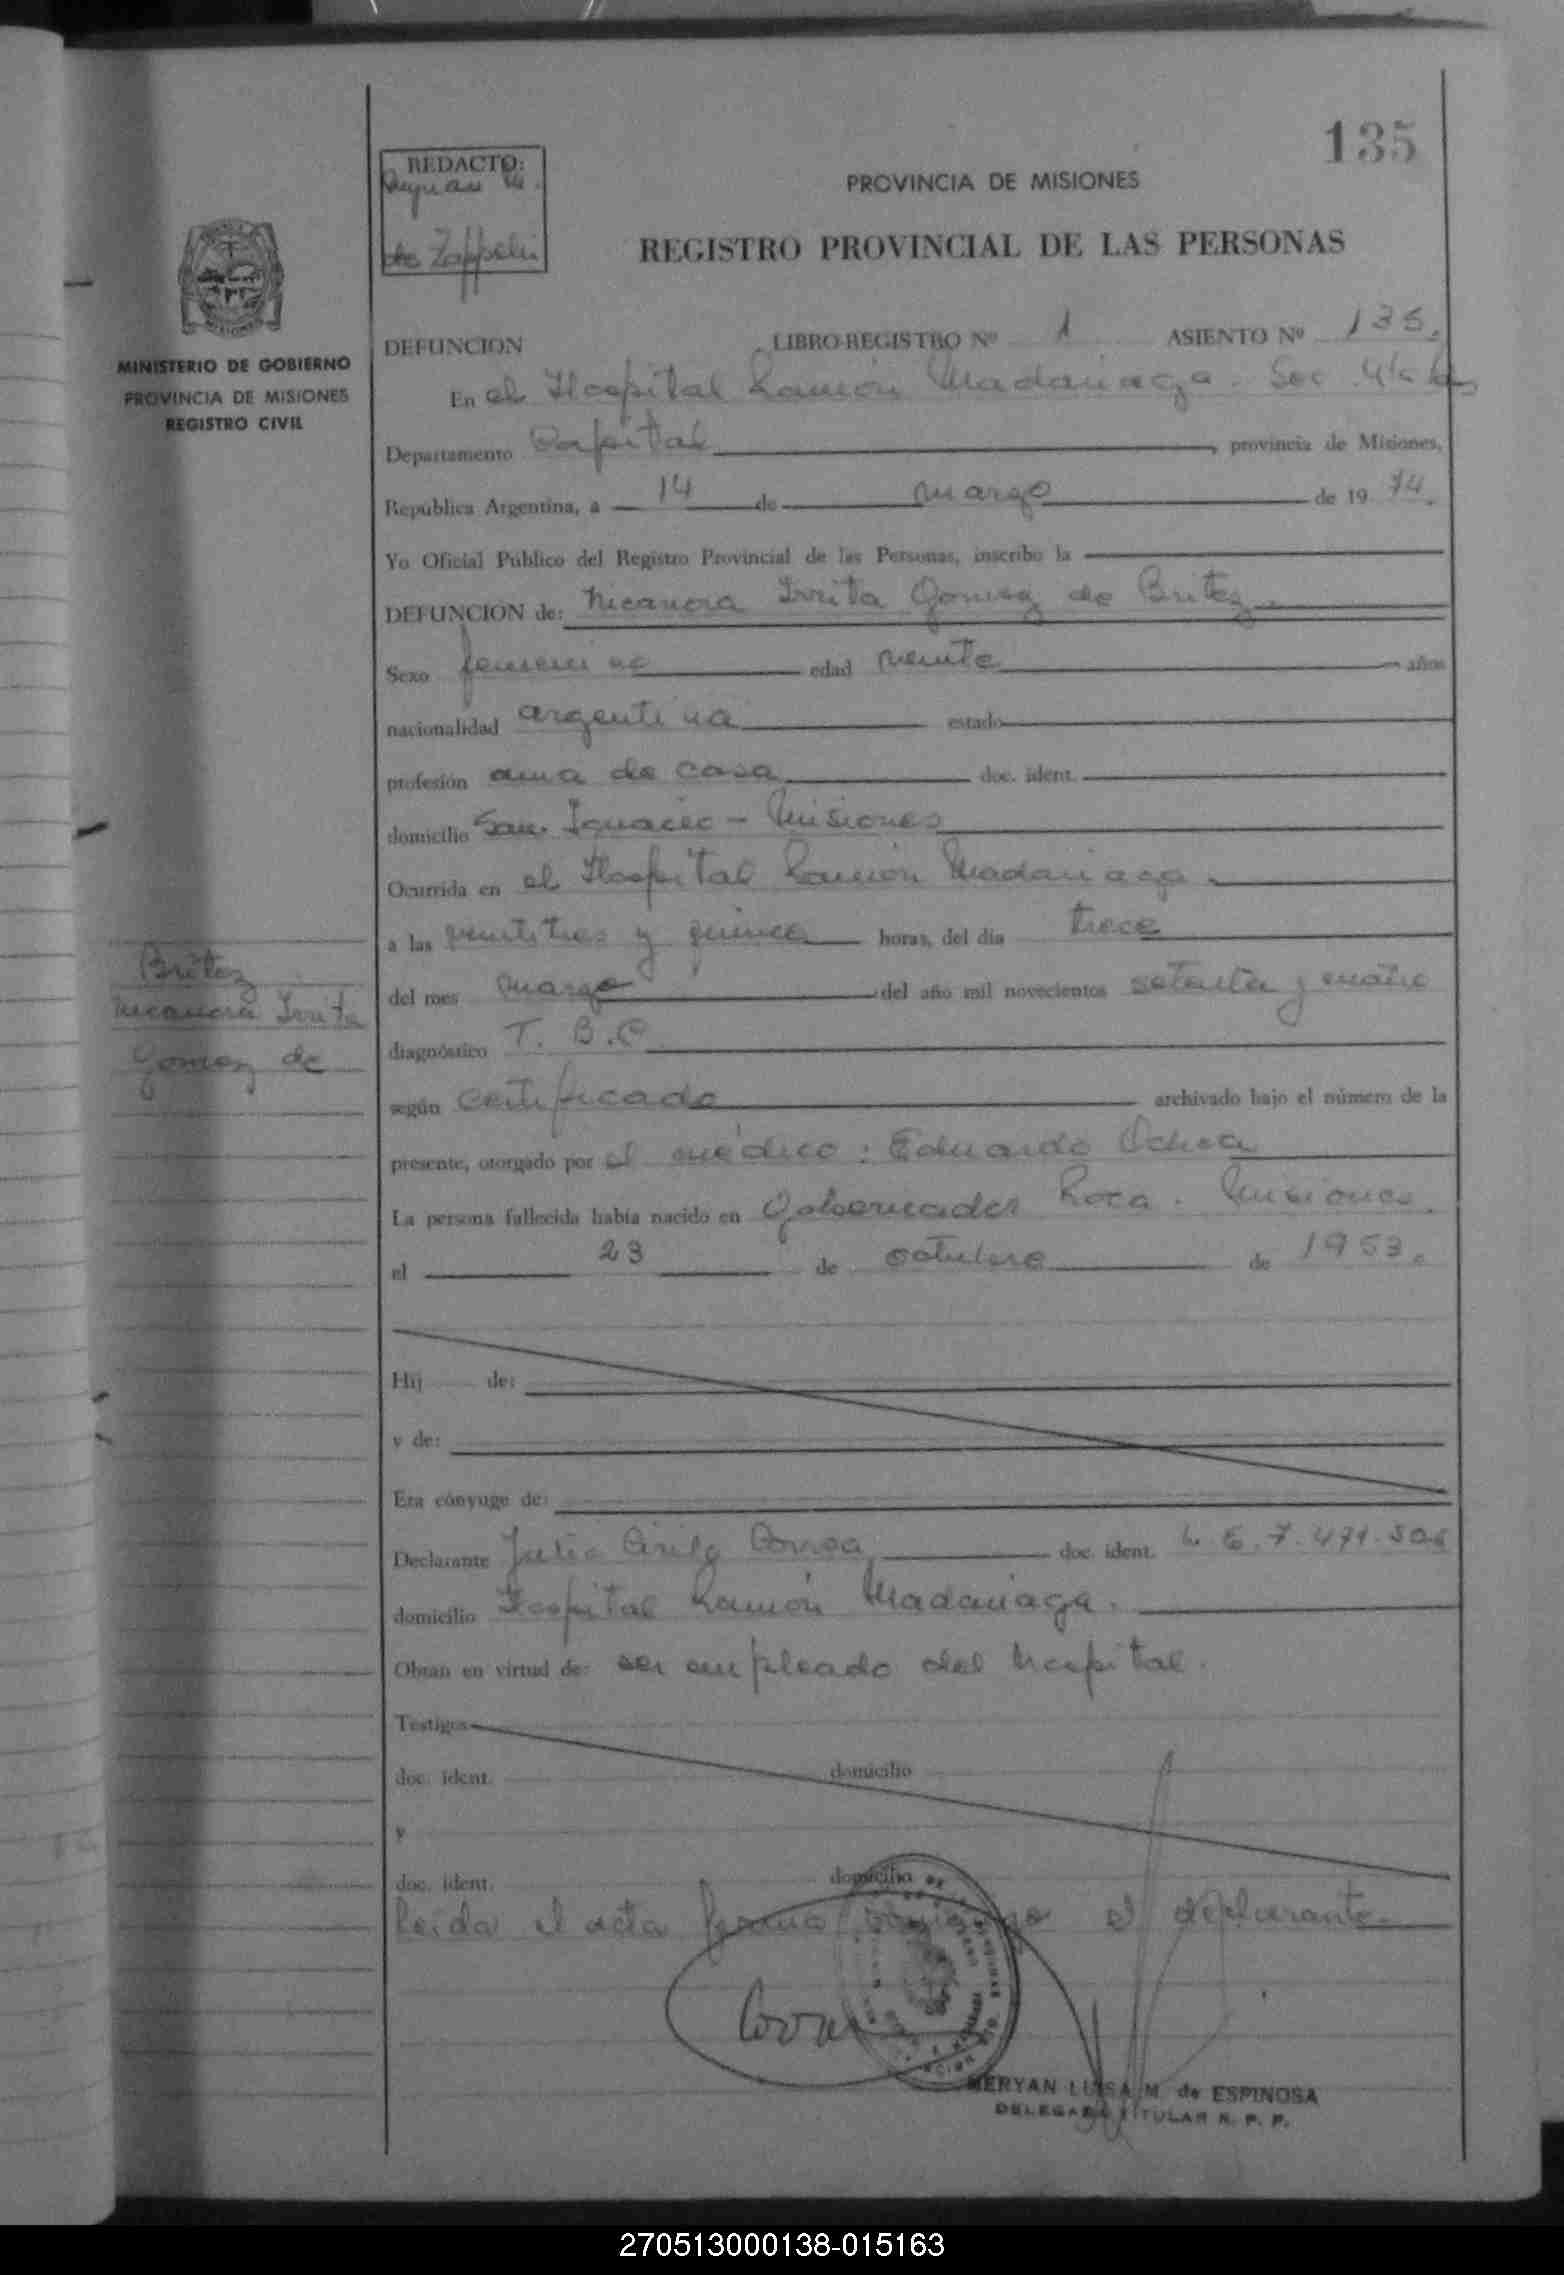 135
REDACTO:
de Zappelli
PROVINCIA DE MISIONES
REGISTRO PROVINCIAL DE LAS PERSONAS
MINISTERIO DE GOBIERNO
PROVINCIA DE MISIONES
REGISTRO CIVIL
DEFUNCION LIBRO-REGISTRO Nº 1 ASIENTO Nº 135.
En el Hospital Ramón Madariaga. Sec
Departamento Capital, provincia de Misiones,
República Argentina, a 14 de marzo de 1974.
Yo Oficial Público del Registro Provincial de las Personas, inscribo la
DEFUNCION de: Nicanora Irrita Gomez de Britez.
Sexo femenino edad veinte años
nacionalidad argentina estado
profesión ama de casa doc. ident.
domicilio San Ignacio - Misiones
Ocurrida en el Hospital Ramón Madariaga
a las veintitres y quince horas, del día trece
del mes marzo del año mil novecientos setenta y cuatro
diagnóstico T. B. C
según certificado archivado bajo el número de la
presente, otorgado por el médico: Eduardo Ochoa
La persona fallecida había nacido en Gobernador Roca. Misiones.
el 23 de octubre de 1953.
Britez
Nicanora Irrita
Gomez de
Hij de:
y de:
Era cónyuge de:
Declarante Julio Cirilo Correa doc. ident. L. E. 7.471.
domicilio Hospital Ramón Madariaga.
Obran en virtud de: ser empleado del hospital.
Testigos
doc. ident. domicilio
y
doc. ident. domicilio
Leida el acta firma conmigo el declarante.
MERYAN LUISA M. de ESPINOSA
DELEGADA TITULAR R. P. P.
270513000138-015163